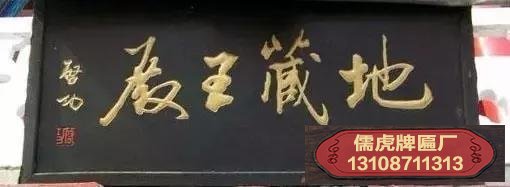 地藏王殿
启功
儒虎牌匾厂
13108711313